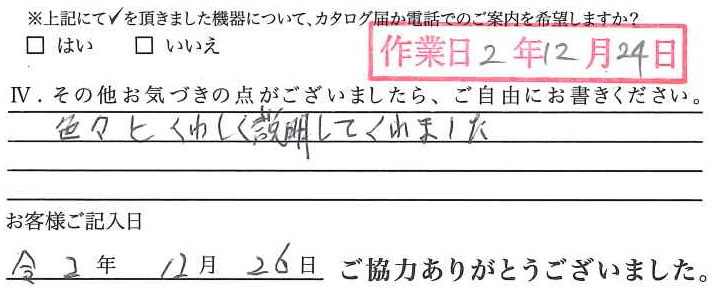 ※上記にて✓を頂きました機器について、カタログ届か電話でのご案内を希望しますか?
□ はい □ いいえ
作業日2年12月24日
Ⅳ．その他お気づきの点がございましたら、ご自由にお書きください。
色々とくわしく説明してくれました
お客様ご記入日
令2年 12月 26日 ご協力ありがとうございました。